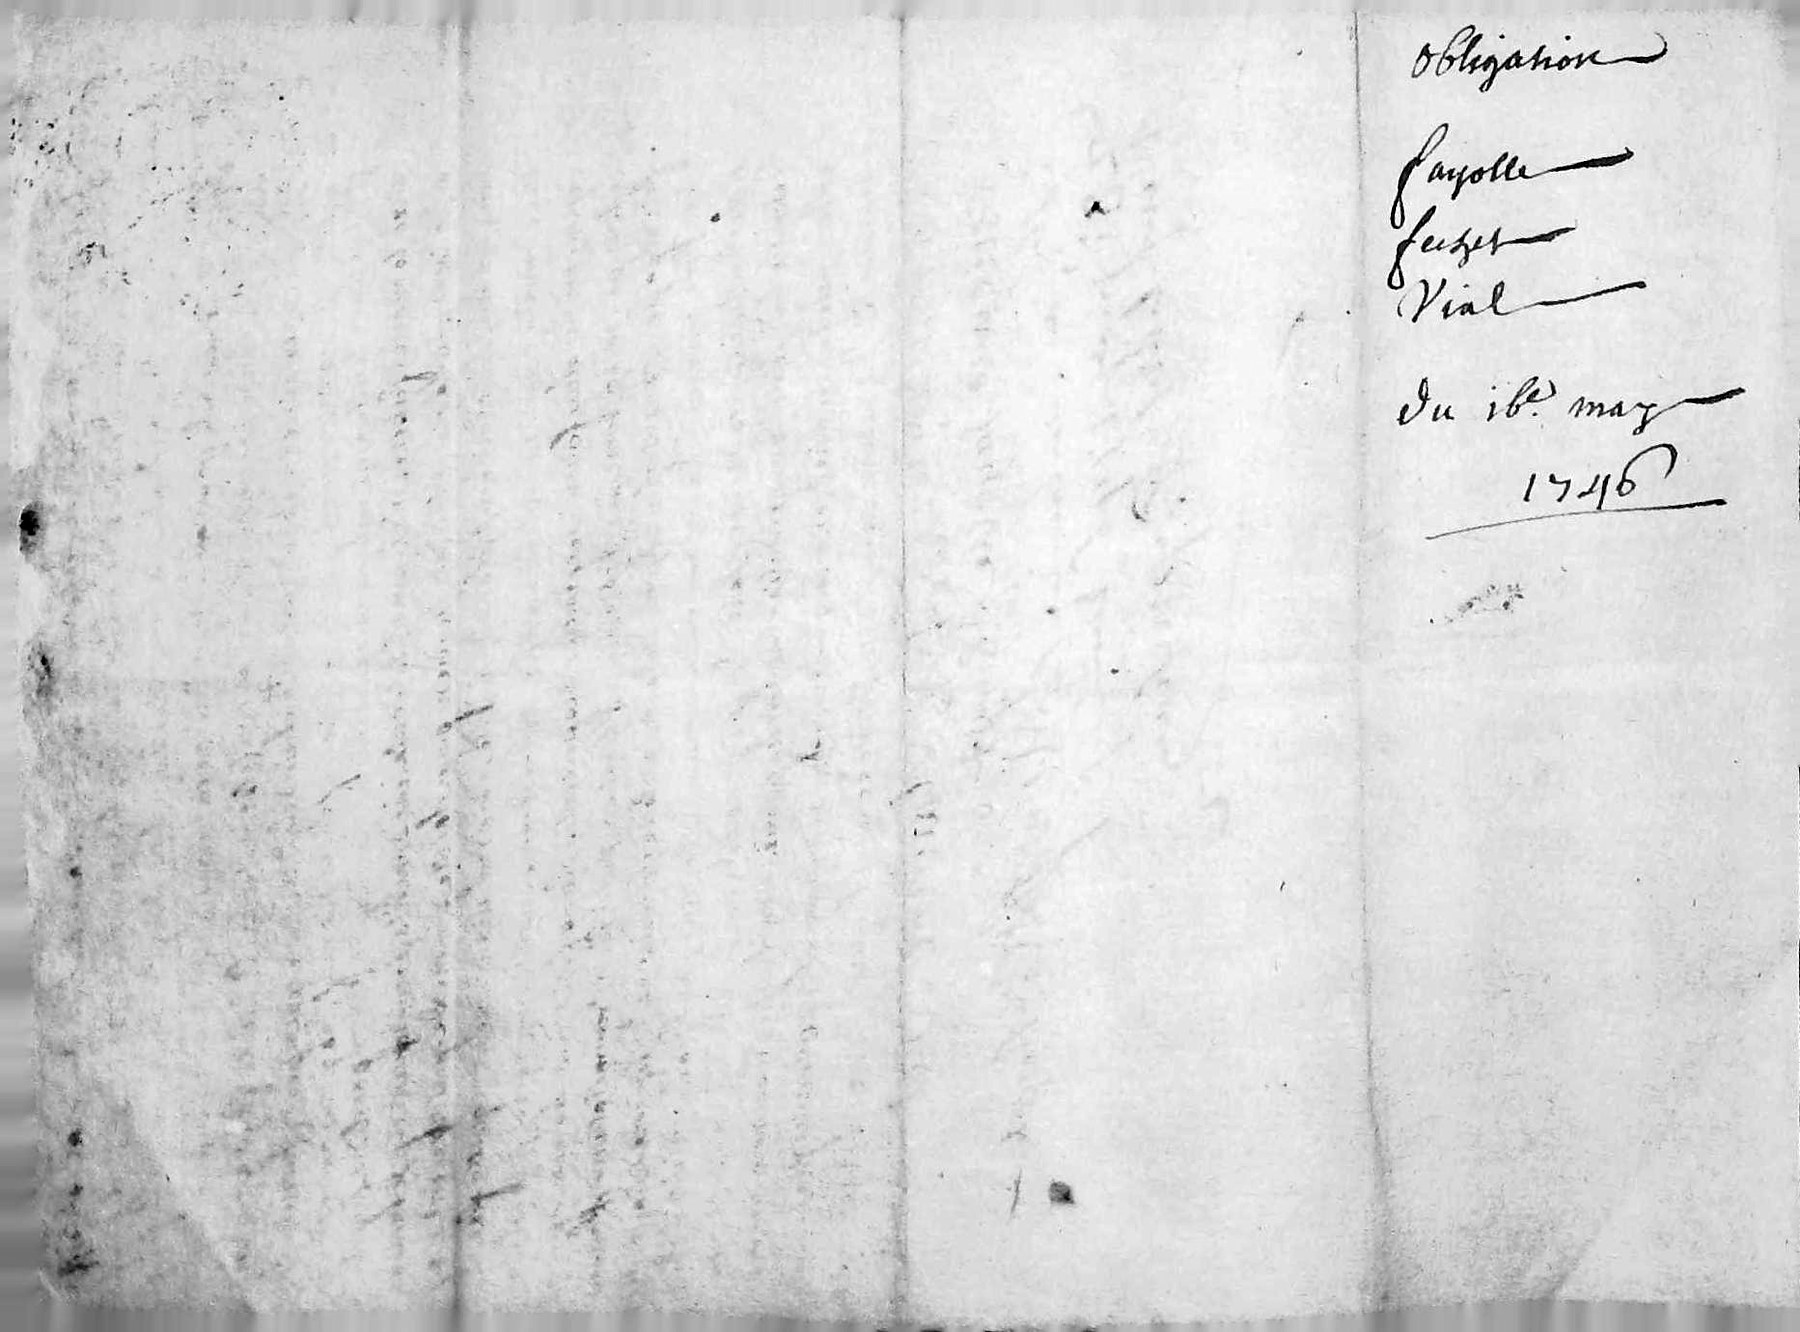 Obligation
fayolle
feuzet
Vial
du 16e. may
1746